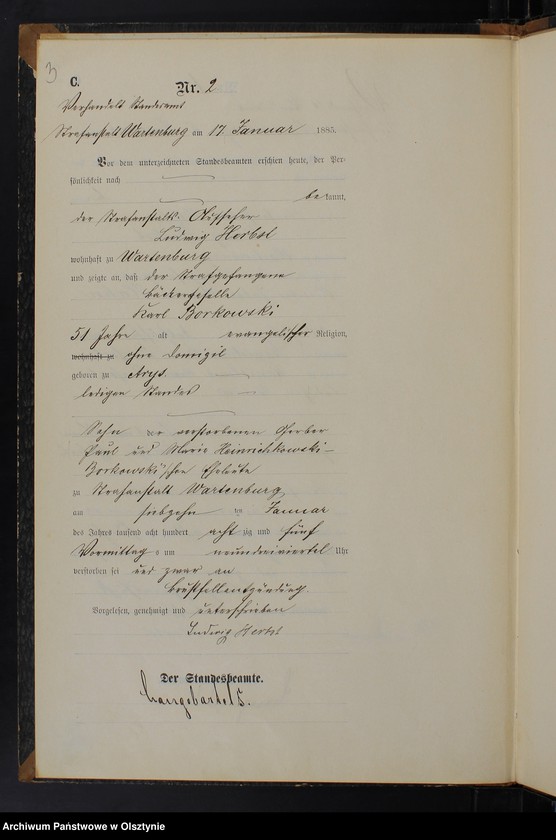 3
C.
Nr. 2
Verhandelt Standesamt
Strafanstalt Wartenburg am 17 Januar 1885.
Vor dem unterzeichneten Standesbeamten erschien heute, der Per-
sönlichkeit nach
bekannt,
der Strafanstalts-
Ludwig Herbst
wohnhaft zu Wartenburg
und zeigte an, daß der Strafgefangene
Bäckergeselle
Karl Borkowski
51 Jahre alt evangelischer Religion,
wohnhaft zu ohne Domizil
geboren zu Arys
ledigen Standes
Sohn der verstorbenen Gerber
Paul und Marie
Borkowski'schen Eheleute
zu Strafanstalt Wartenburg
am siebzehn ten Januar
des Jahres tausend acht hundert acht zig und fünf
Vormittags um neundreiviertel Uhr
verstorben sei und zwar an
Brustfellentzündung.
Vorgelesen, genehmigt und unterschrieben
Ludwig Herbst
Der Standesbeamte.
Archiwum Państwowe w Olsztynie